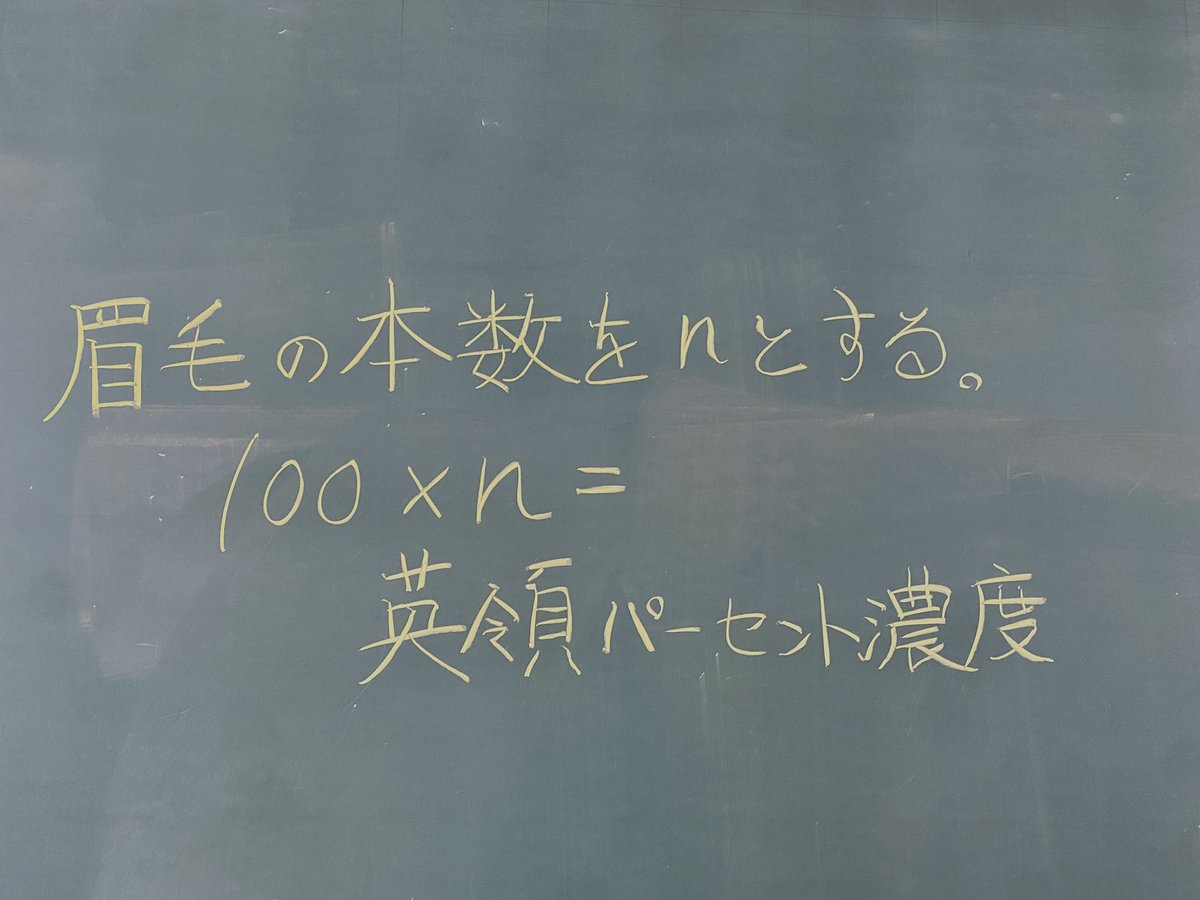 眉毛の本数をnとする。
100×n=
英領パーセント濃度